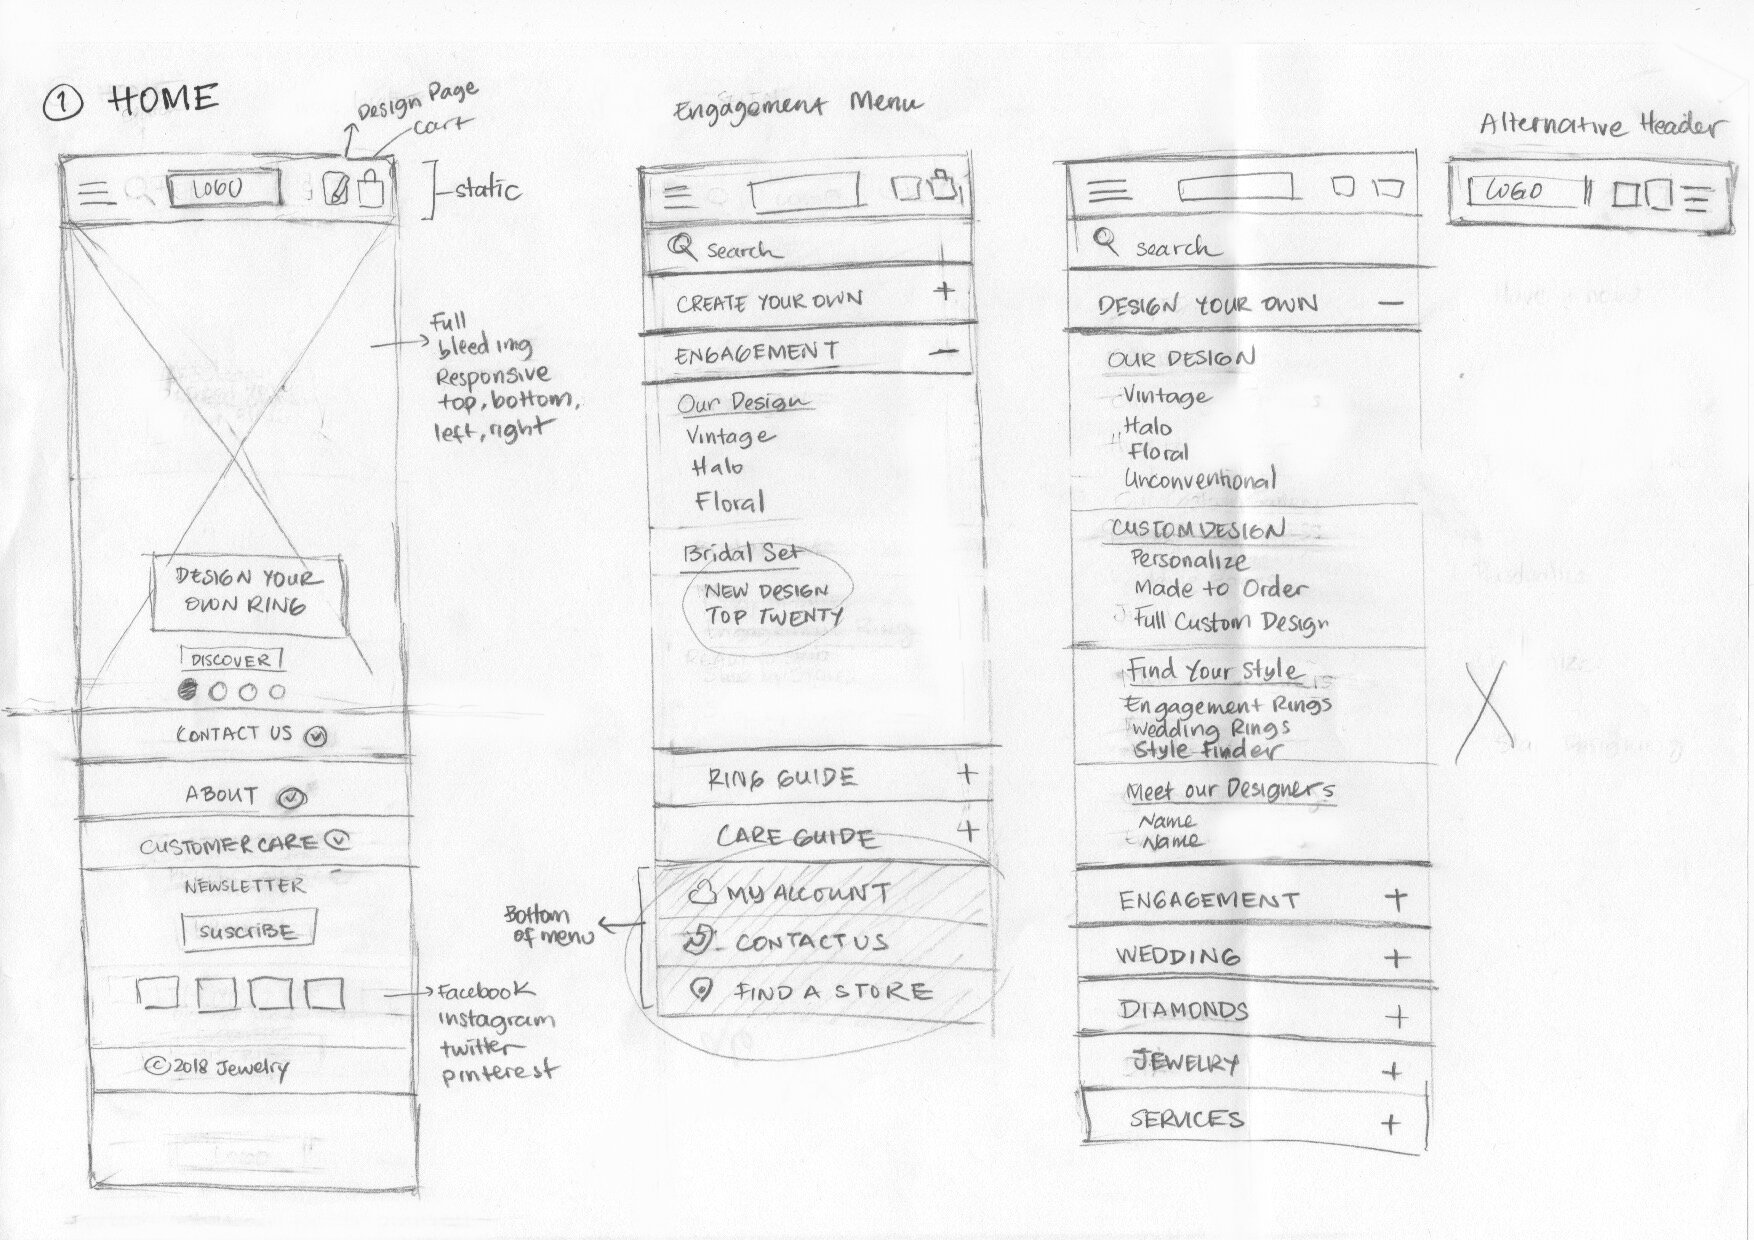 1 HOME
Design Page
cart
LOGO
static
Full
bleed img
Responsive
top, bottom,
left, right
DESIGN YOUR
OWN RING
DISCOVER
CONTACT US
ABOUT
CUSTOMER CARE
NEWSLETTER
SUSCRIBE
Facebook
instagram
twitter
pinterest
© 2018 Jewelry
Engagement Menu
search
CREATE YOUR OWN +
ENGAGEMENT —
Our Design
Vintage
Halo
Floral
Bridal Set
NEW DESIGN
TOP TWENTY
RING GUIDE +
CARE GUIDE +
Bottom
of menu
MY ACCOUNT
CONTACT US
FIND A STORE
search
DESIGN YOUR OWN —
OUR DESIGN
Vintage
Halo
Floral
Unconventional
CUSTOM DESIGN
Personalize
Made to Order
Full Custom Design
Find Your Style
Engagement Rings
Wedding Rings
Style Finder
Meet our Designers
Name
Name
ENGAGEMENT +
WEDDING +
DIAMONDS +
JEWELRY +
SERVICES +
Alternative Header
LOGO